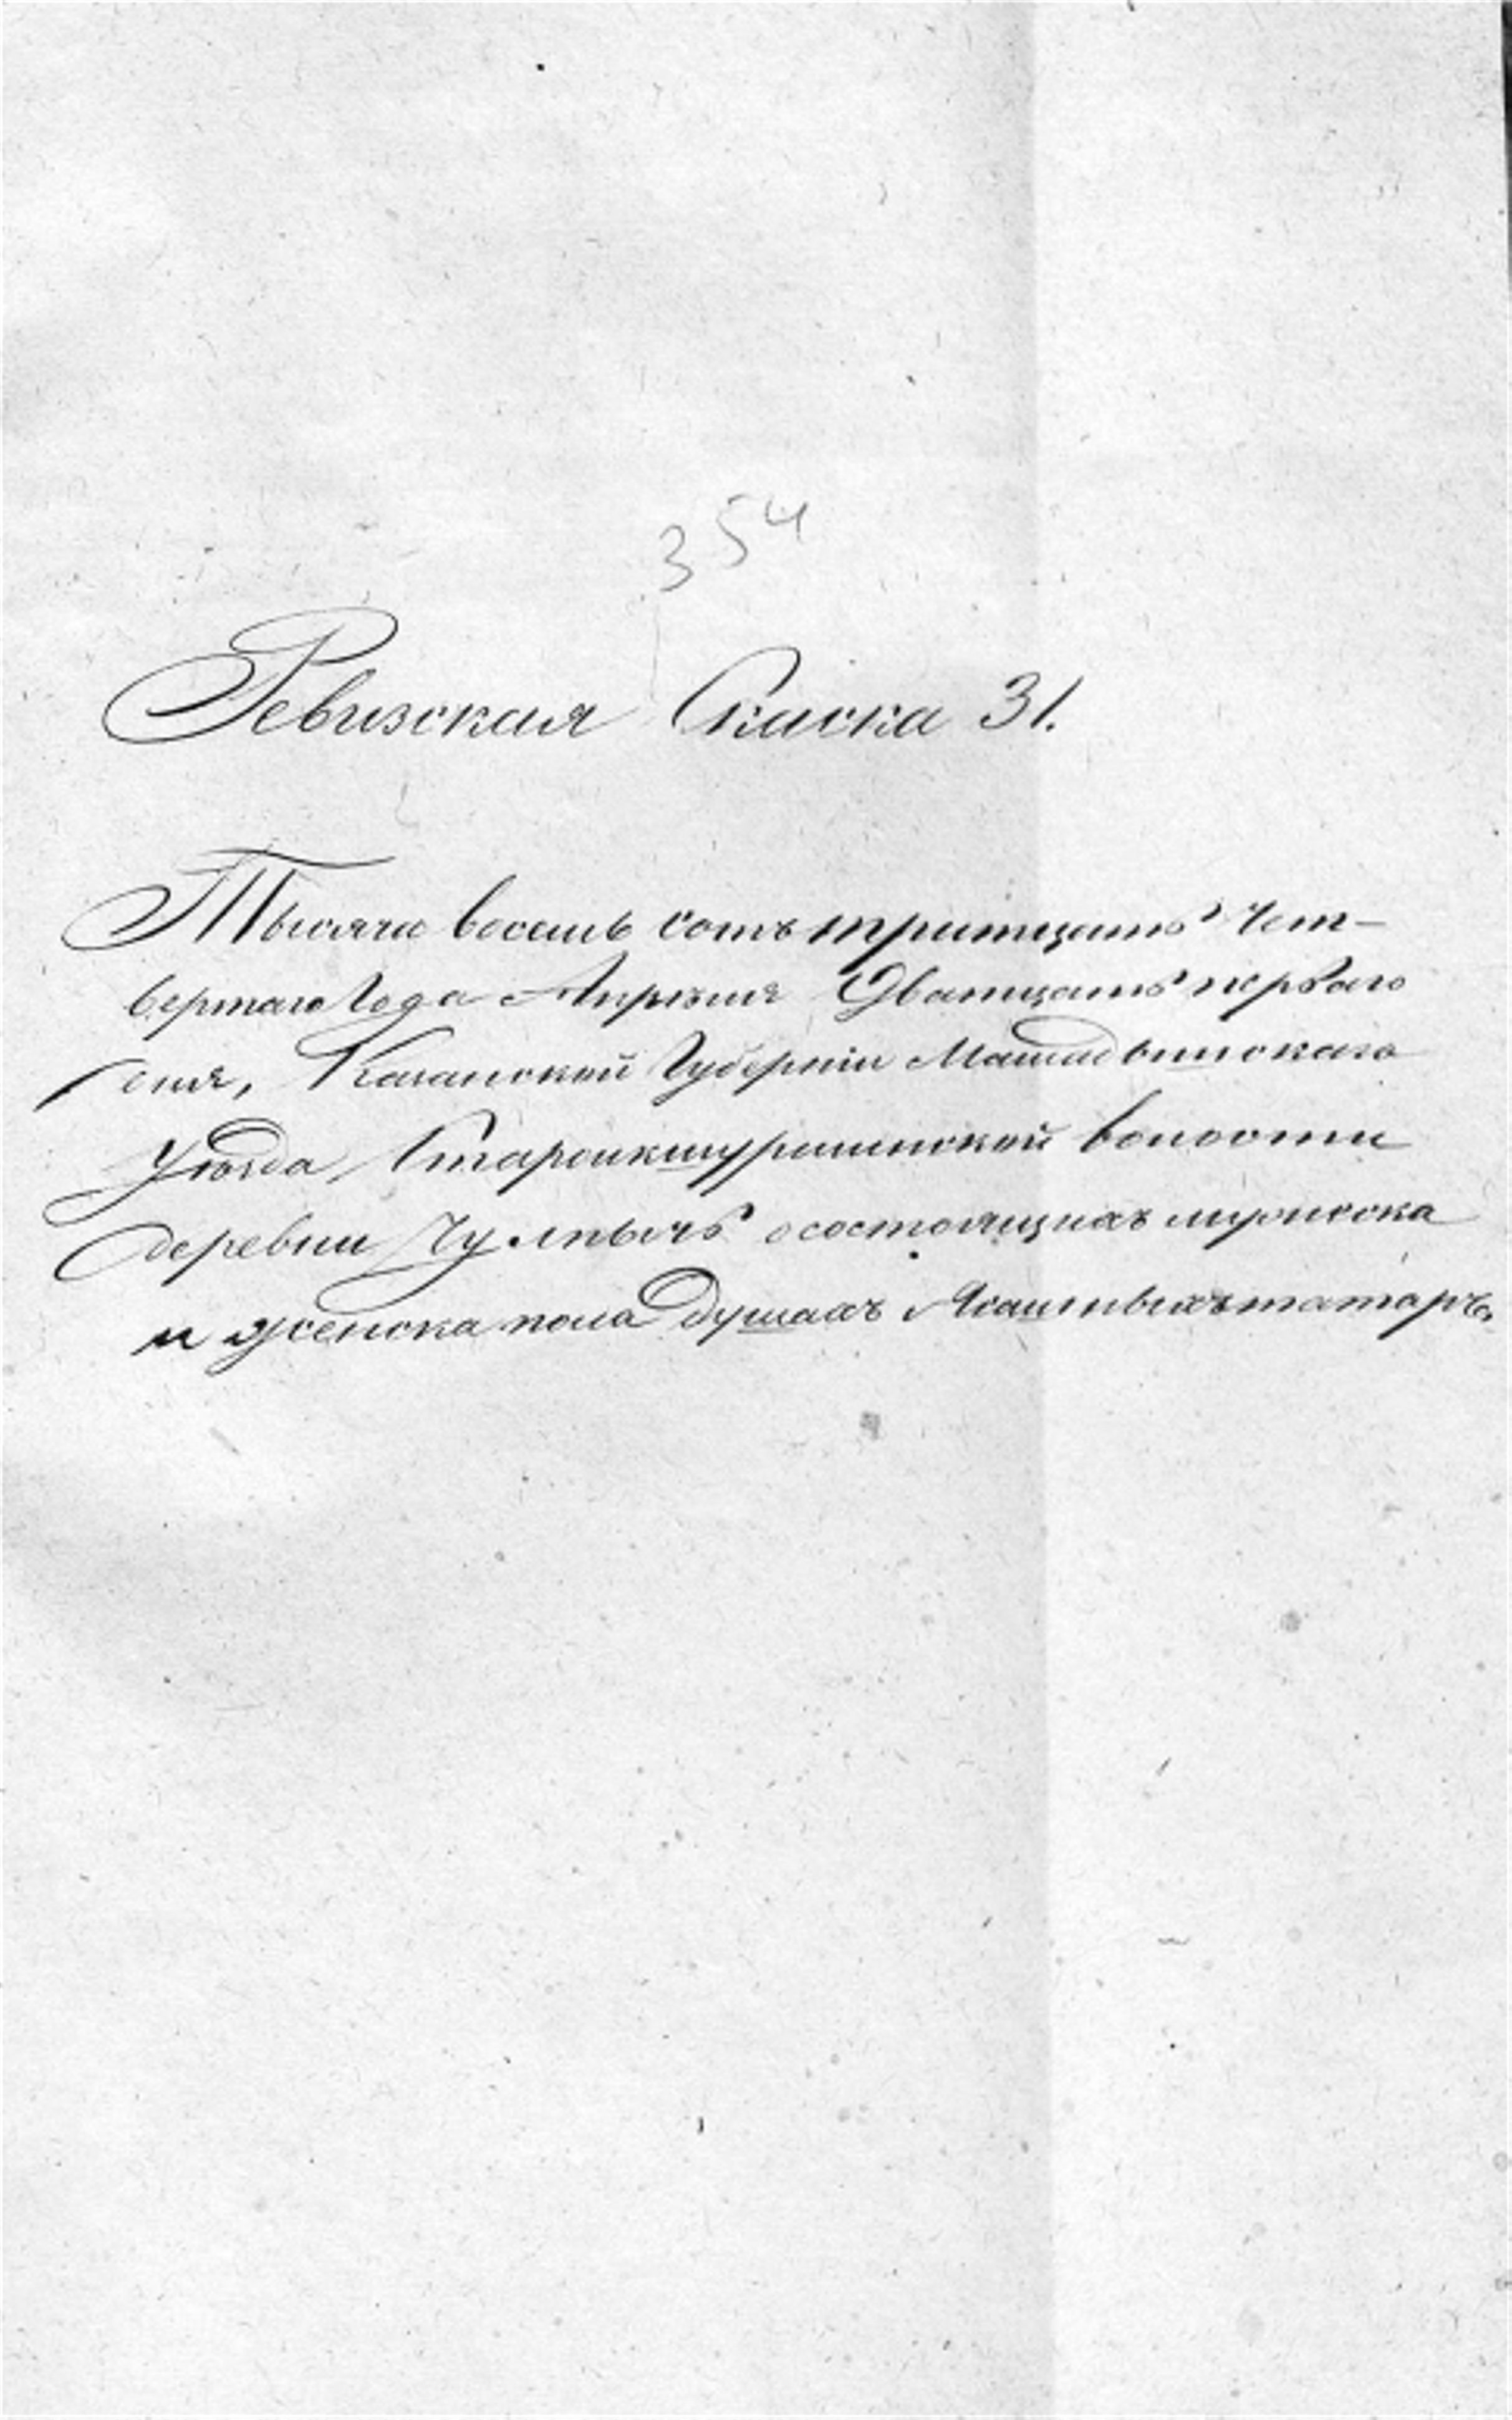 354
Ревизская Скаска 31.
Тысяча восемь сотъ тритцать чет-
вертаго Года Апрѣля Дватцать перваго
дня, Казанской Губерніи Мамадышскаго
Уѣзда, волости
деревни состоящихъ мужеска
и женска пола Душахъ Ясашныхъ татаръ,